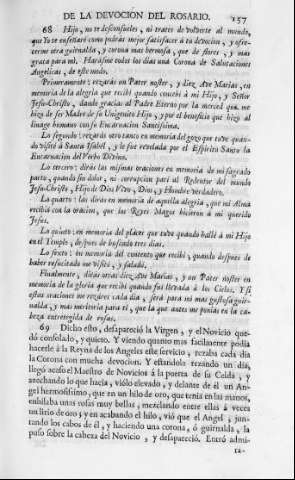 DE LA DEVOCION DEL ROSARIO. 157
68 Hijo, no te desconsueles, ni trates de volverte al mundo,
que Yo te enseñaré como podrás mejor satisfacer à tu devocion, y ofre-
cerme otra guirnalda, y corona mas hermosa, que de flores, y mas
grata para mì. Harásme todos los dias una Corona de Salutaciones
Angelicas, de este modo.
Primeramente: rezaràs un Pater noster, y diez Ave Marias, en
memoria de la alegria que recibì quando concebì à mi Hijo, y Señor
Jesu-Christo, dando gracias al Padre Eterno por la merced que me
hizo de ser Madre de su Unigenito Hijo, y por el beneficio que hizo al
linage humano con su Encarnacion Santissima.
Lo segundo: rezaràs otro tanto en memoria del gozo que tuve quan-
do visitè à Santa Isabel, y le fue revelada por el Espiritu Santo la
Encarnacion del Verbo Divino.
Lo tercero: diràs las mismas oraciones en memoria de mi sagrado
parto, quando sin dolor, ni corrupcion parì al Redentor del mundo
Jesu-Christo, Hijo de Dios Vivo, Dios, y Hombre verdadero.
Lo quarto: las diràs en memoria de aquella alegria, que mi Alma
recibiò con la oracion, que los Reyes Magos hicieron à mi querido
Jesus.
Lo quinto: en memoria del placer que tuve quando hallè à mi Hijo
en el Templo, despues de buscado tres dias.
Lo sexto: en memoria del contento que recibì, quando despues de
haber resucitado me visitò, y saludò.
Finalmente, diràs otras diez Ave Marias, y un Pater noster en
memoria de la gloria que recibì quando fui llevada à los Cielos. Y si
estas oraciones me rezáres cada dia, serà para mì mas gustosa guir-
nalda, y mas meritoria para tì, que la que antes me ponias en la ca-
beza entretegida de rosas.
69 Dicho esto, desapareciò la Virgen, y el Novicio que-
dò consolado, y quieto. Y viendo quanto mas facilmente podia
hacerle à la Reyna de los Angeles este servicio, rezaba cada dia
la Corona con mucha devocion. Y estandola rezando un dia,
llegò acaso el Maestro de Novicios à la puerta de su Celda, y
acechando lo que hacia, viòlo elevado, y delante de èl un An-
gel hermosissimo, que en un hilo de oro, que tenia en las manos,
enhilaba unas rosas muy bellas, mezclando entre ellas à veces
un lirio de oro; y en acabando el hilo, viò que el Angel, jun-
tando los cabos de èl, y haciendo una corona, ò guirnalda, la
puso sobre la cabeza del Novicio, y desapareciò. Entrò admi-